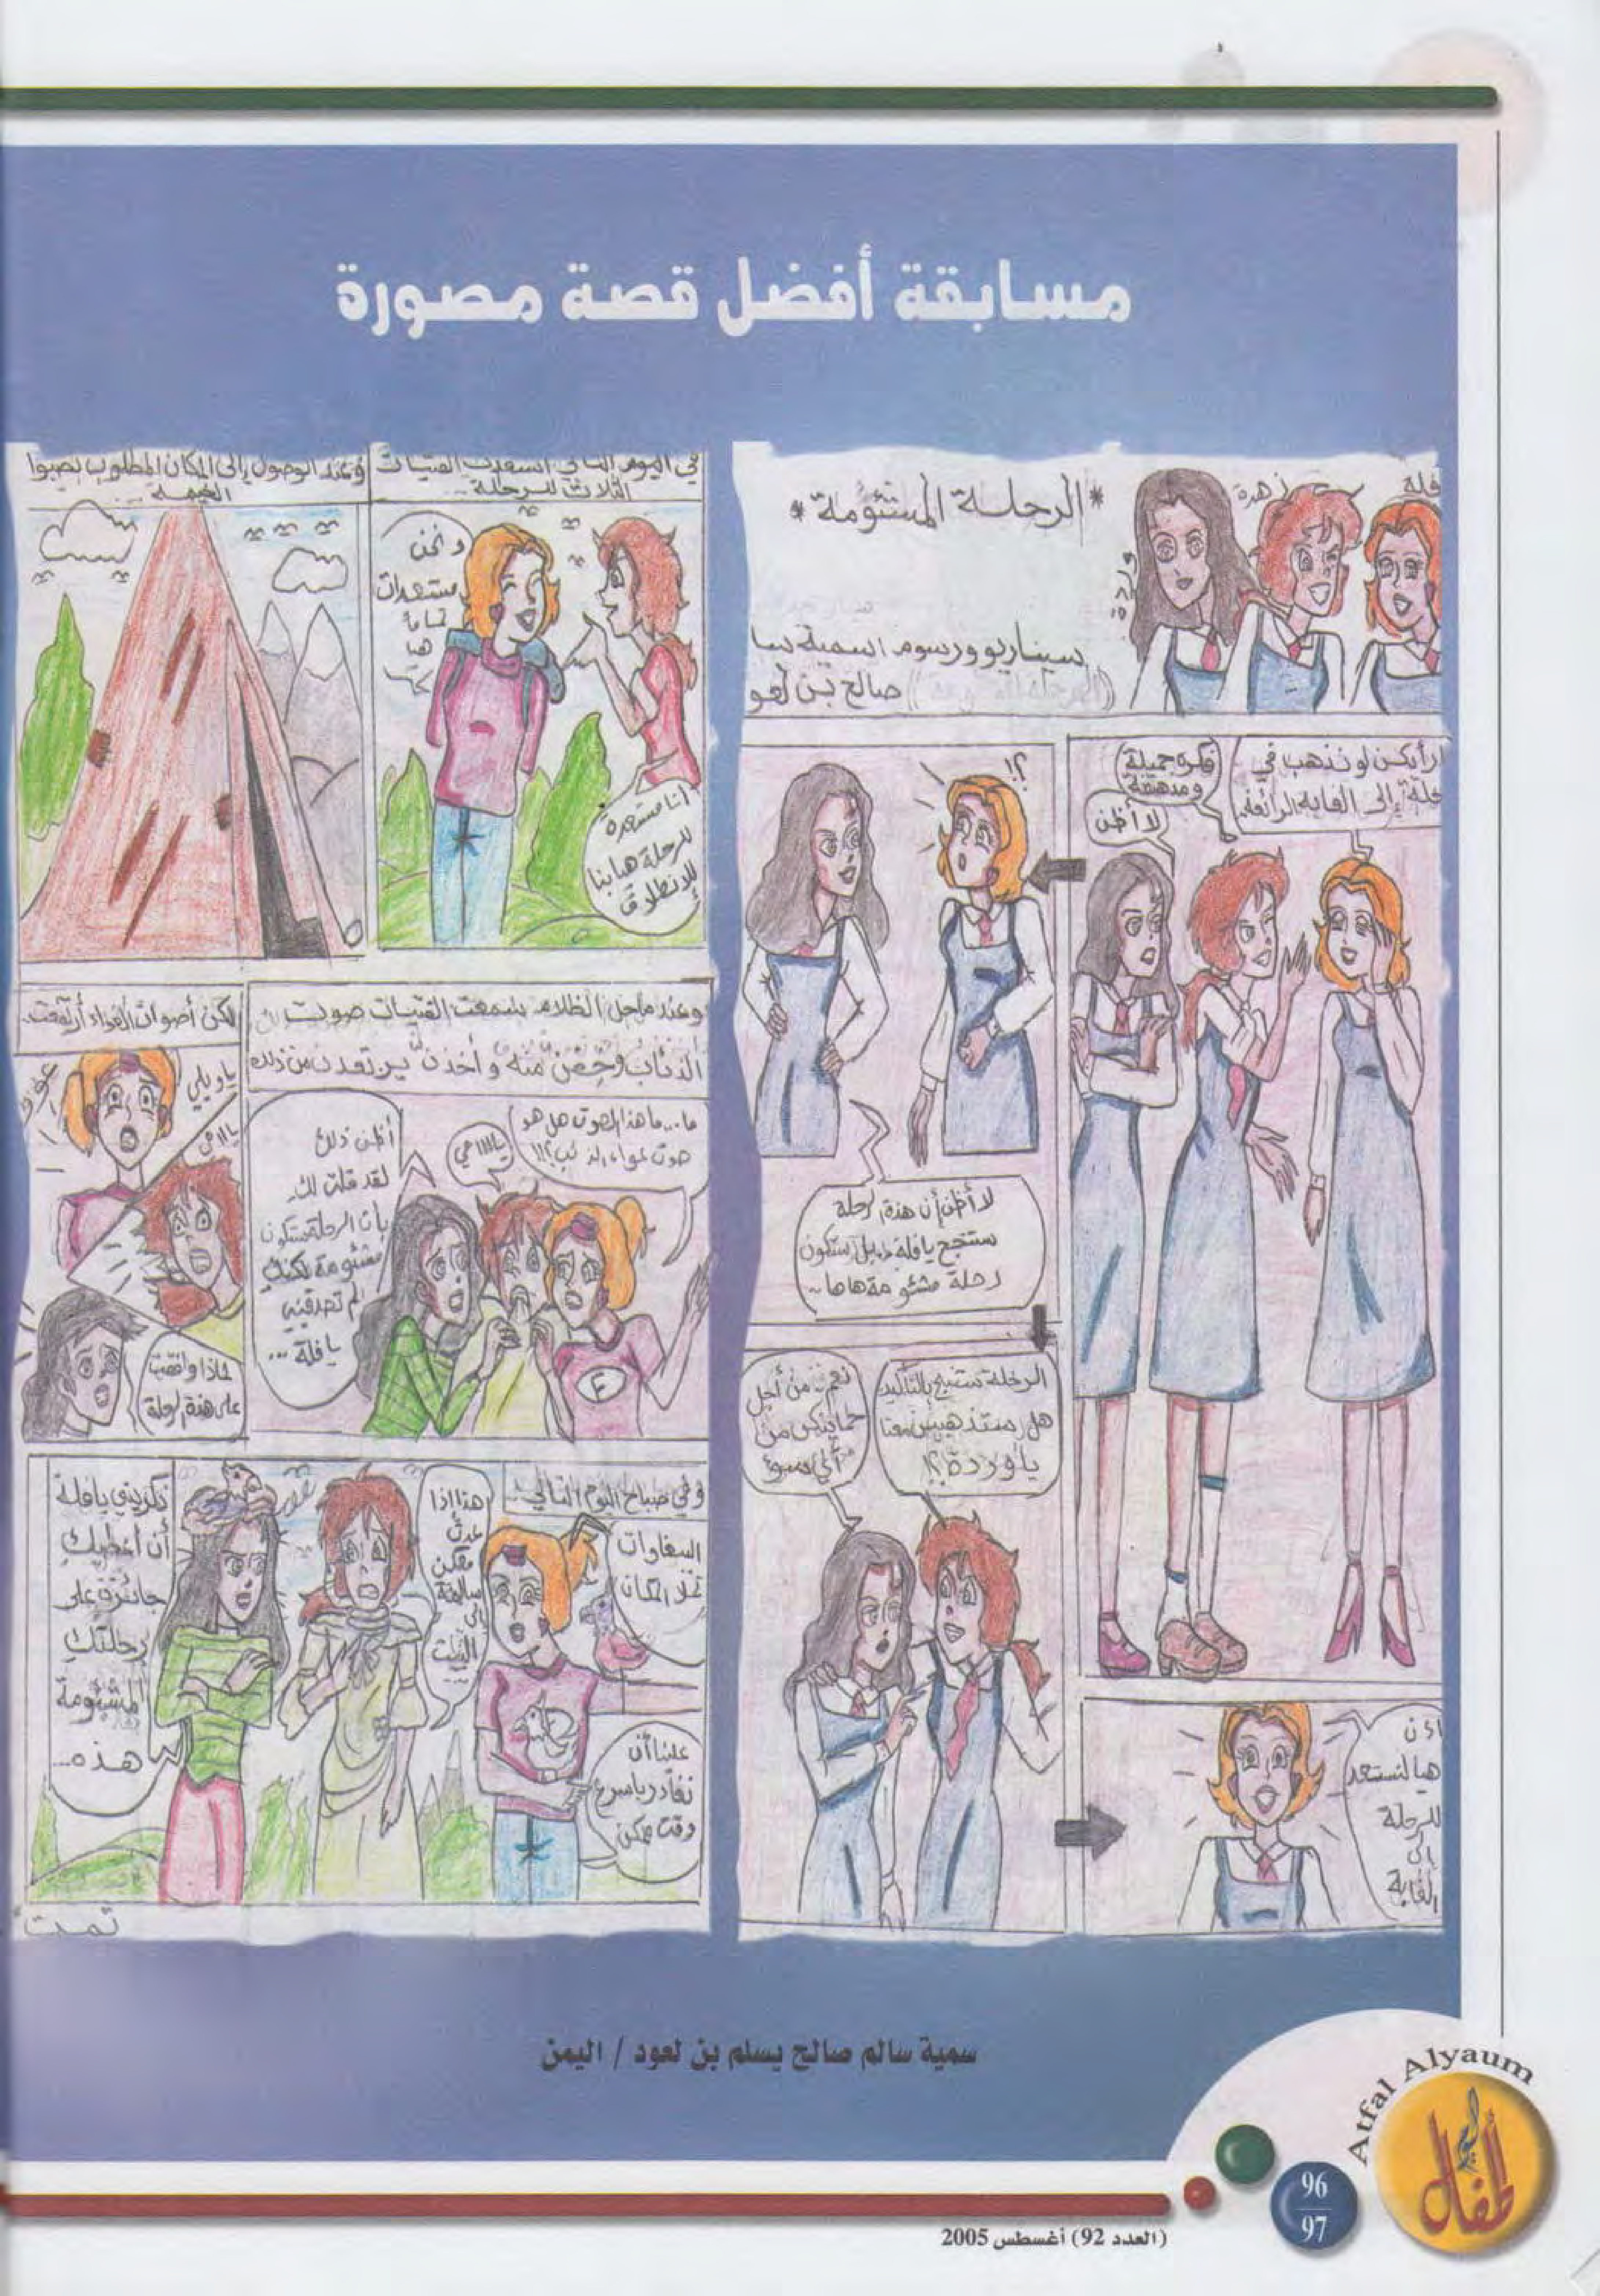 مسابقة أفضل قصة مصورة
فلة
زهرة
وردة
* الرحلة المشئومة *
سيناريو ورسوم اسمية سا
صالح بن لعو
أرأيكن لو نذهب في
حلة إلى الغابة الرائعة
فكرة جميلة
ومدهشة
لا أظن
؟!
لا أظن أن هذة الرحلة
ستنجح يا فلة بل ستكون
رحلة مشئومة هاها
الرحلة ستنجح بالتأكيد
هل ستذهبين معنا
يا وردة؟!
نعم من أجل
حمايتكن من
أي سوء
اذن
هيا لنستعد
للرحلة
إلى
الغابة
في اليوم التالي استعدت الفتيات
الثلاث للرحلة ...
أنا مستعدة
للرحلة هيا بنا
للانطلاق
و نحن
مستعدات
تماماً
هيا
وعند الوصول إلى المكان المطلوب نصبوا
الخيمة ...
وعند ما حل الظلام سمعت الفتيات صوت
الذئاب وخفن منه و أخذن يرتعدن من ذلك
ما...ما هذا الصوت هل هو
صوت عواء الذئب؟!!
يااااامي
أظن ذلك
لقد قلت لك
بأن الرحلة ستكون
مشئومة لكنك
لم تصدقيني
يا فلة ...
لكن أصوات العواء أرتفعت..
ياويلي
ياااامي
لماذا وافقت
على هذة الرحلة
وفي صباح اليوم التالي...
الببغاوات
تملأ المكان
علينا أن
نغادر باسرع
وقت ممكن
هذا اذا
عدتن
سالمة
إلى
البيت
ذكريني يا فلة
أن أعطيك
جائزة على
رحلتك
المشئومة
هذه...
تمت
سمية سالم صالح يسلم بن لعود / اليمن
Atfal Alyaum
أطفال اليوم
96
97
(العدد 92) أغسطس 2005